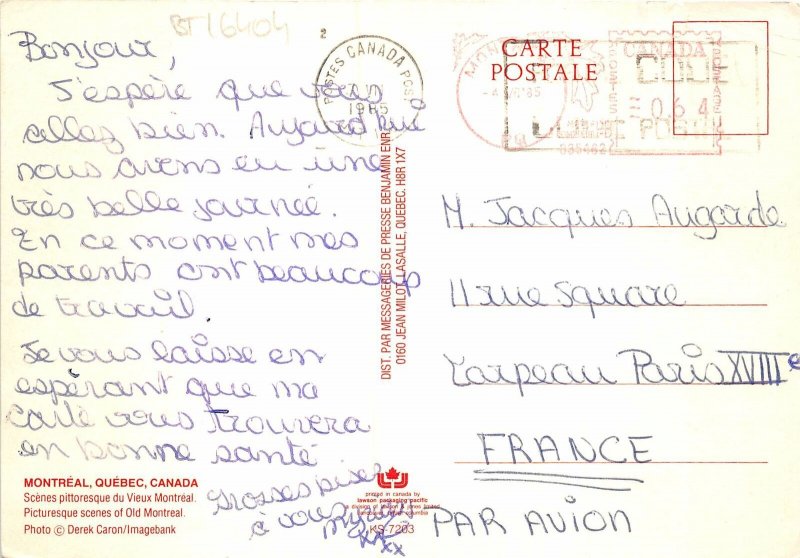 BT16404
Bonjour,
J'espère que vous
allez bien. Aujourd'hui
nous avons eu une
très belle journée.
En ce moment mes
parents ont beaucoup
de travail.
Je vous laisse en
espérant que ma
carte vous trouvera
en bonne santé
Grosses bises
à vous
xxx
MONTRÉAL, QUÉBEC, CANADA
Scènes pittoresque du Vieux Montréal.
Picturesque scenes of Old Montreal.
Photo © Derek Caron/Imagebank
2
POSTES CANADA POST
1985
DIST. PAR MESSAGERIES DE PRESSE BENJAMIN ENR.
0160 JEAN MILOT, LASALLE, QUEBEC. H8R 1X7
printed in canada by
lawson packaging pacific
a division of lawson & jones limited
KS-7203
CARTE
POSTALE
CANADA
064
M. Jacques Augarde
11 rue Square
Carpeau Paris XVIIIe
FRANCE
PAR AVION